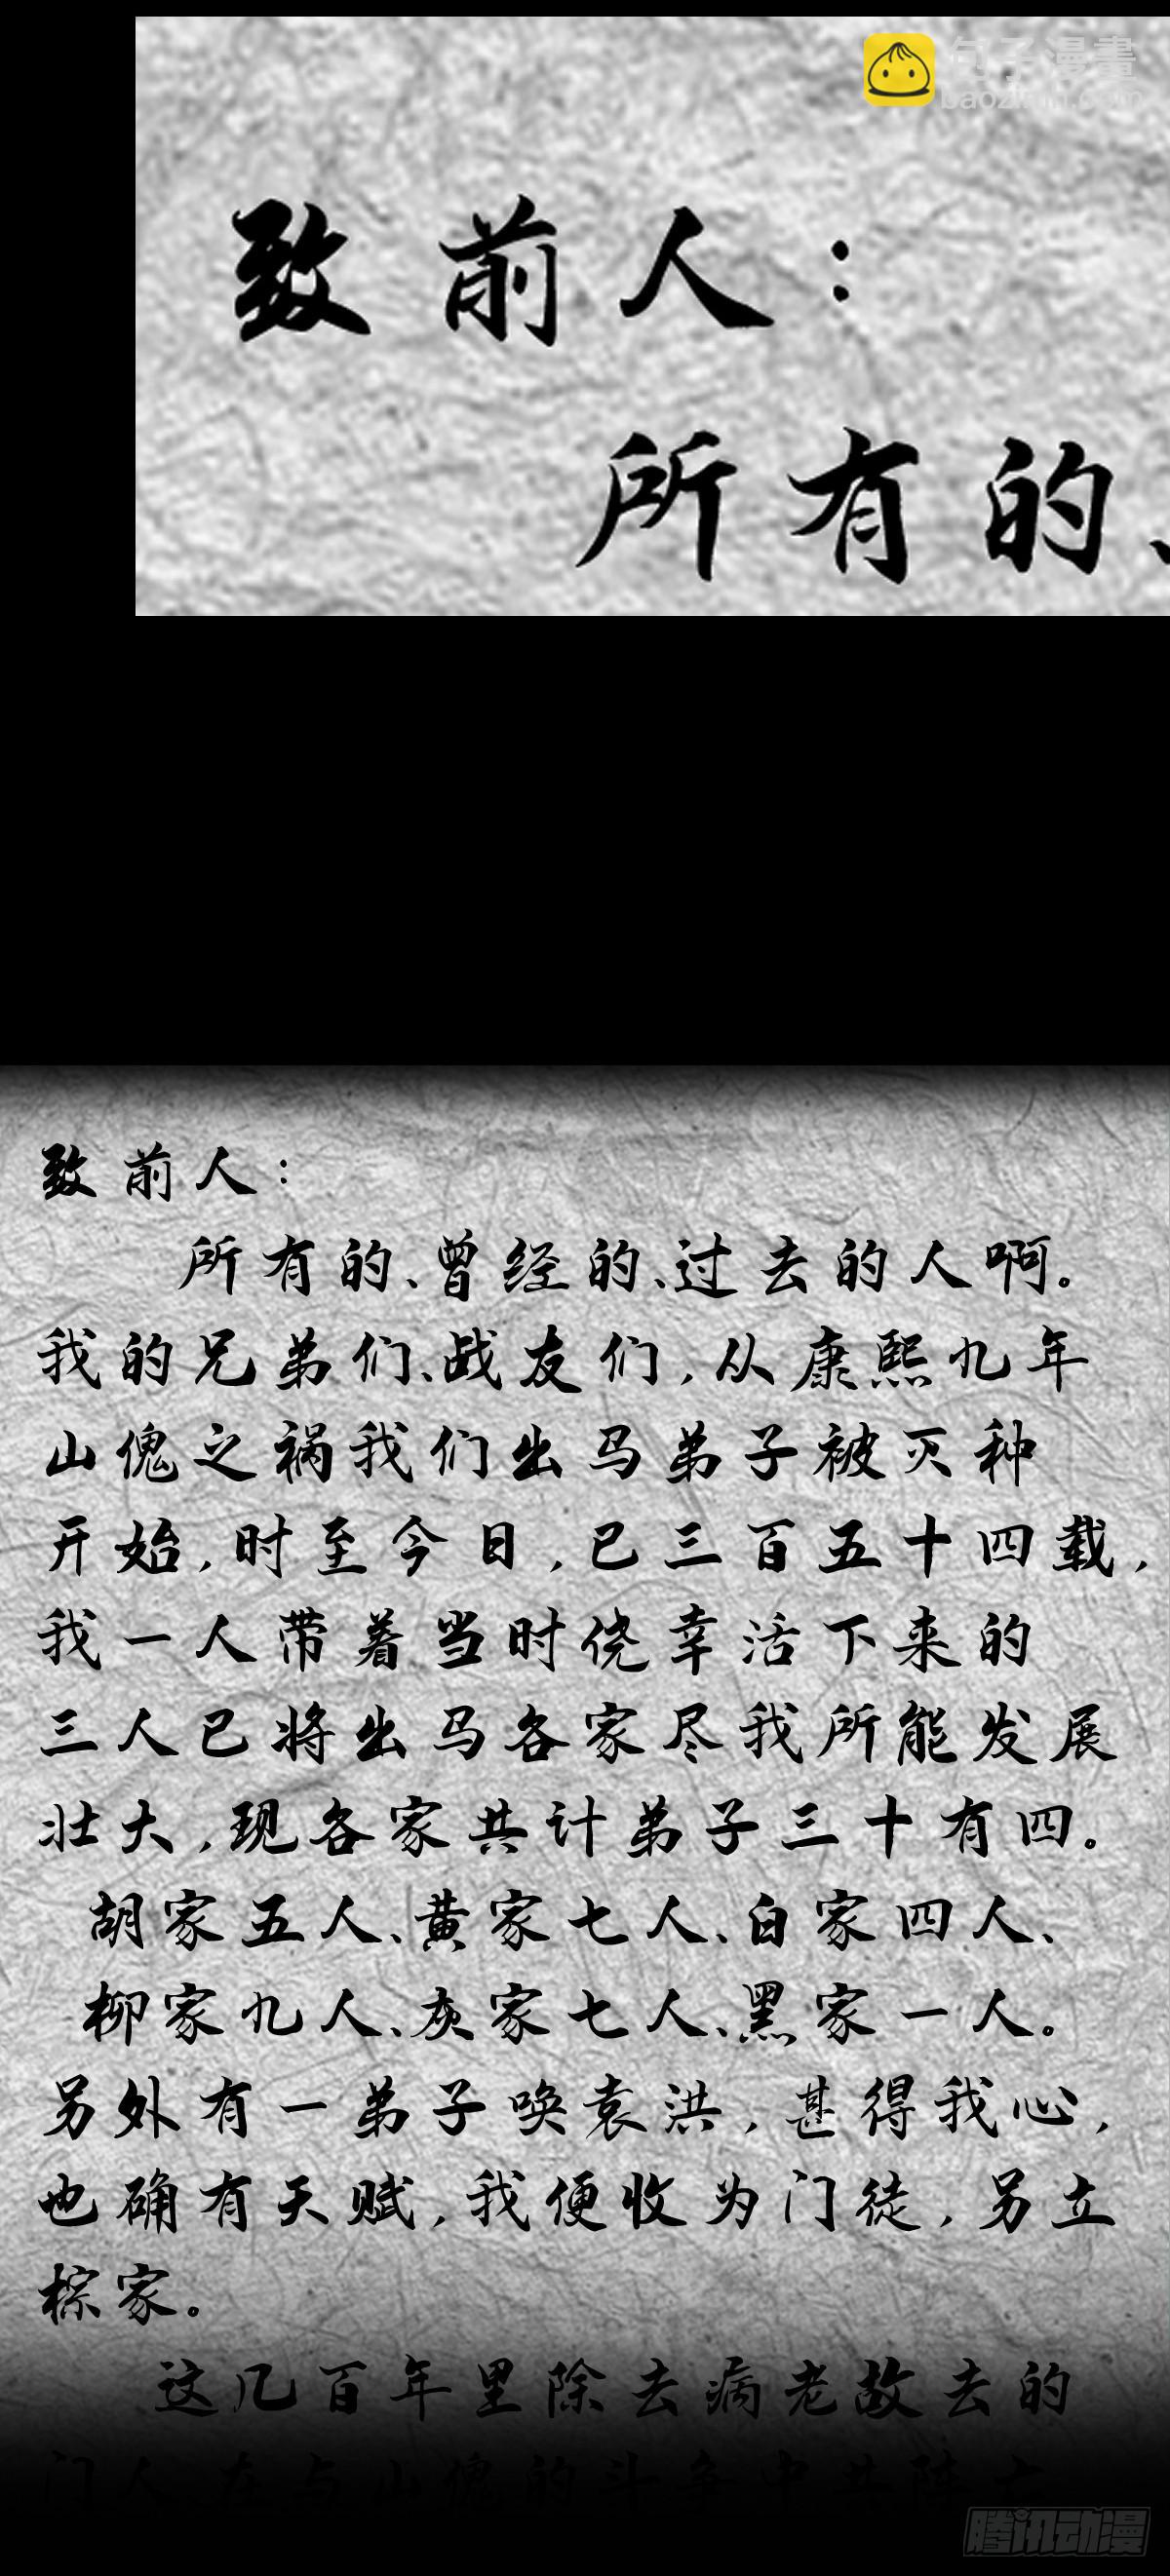 包子漫畫
baozimh.com
致前人：
所有的、
致前人：
所有的、曾经的、过去的人啊。
我的兄弟们、战友们，从康熙九年
山傀之祸我们出马弟子被灭种
开始，时至今日，已三百五十四载，
我一人带着当时侥幸活下来的
三人已将出马各家尽我所能发展
壮大，现各家共计弟子三十有四。
胡家五人、黄家七人、白家四人、
柳家九人、灰家七人、黑家一人。
另外有一弟子唤袁洪，甚得我心，
也确有天赋，我便收为门徒，另立
棕家。
这几百年里除去病老故去的
门人，在与山傀的斗争中共阵亡
腾讯动漫